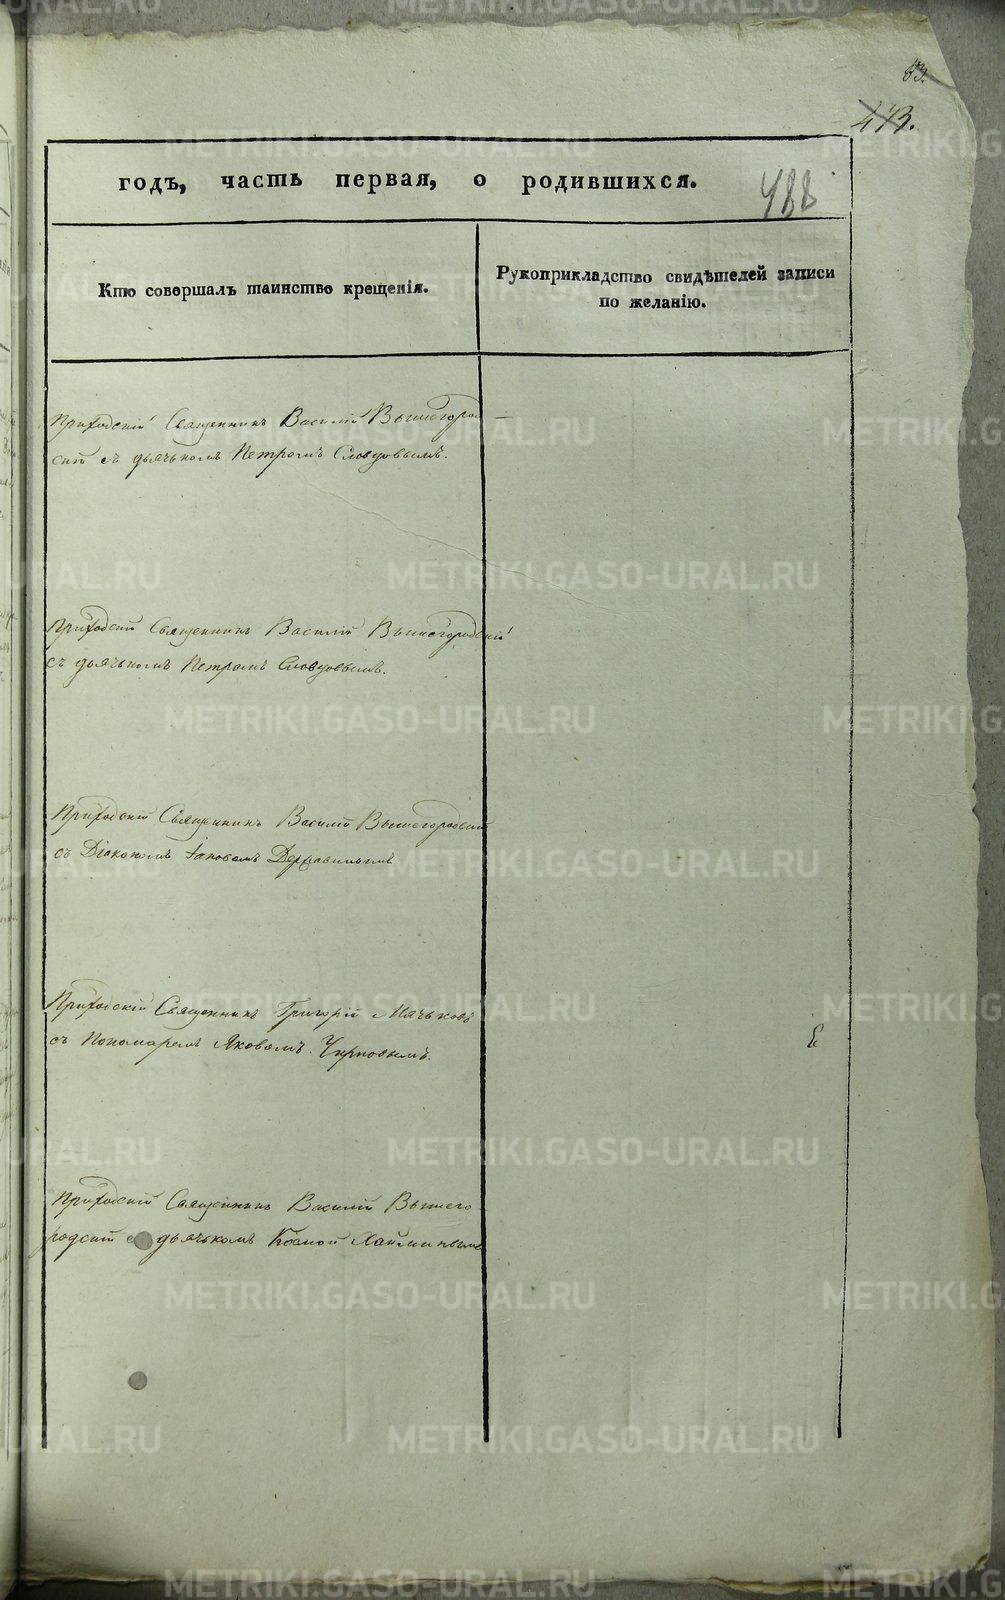 METRIKI.GASO-URAL.RU
413.
годъ, часть первая, о родившихся.
488
Кто совершалъ таинство крещенія.
Рукоприкладство свидѣтелей записи
по желанію.
Приходскій Священникъ Василій Вышегород
скій съ дьячькомъ Петромъ Словцовымъ.
Приходскій Священникъ Василій Вышегородскій
съ дьячькомъ Петромъ Словцовымъ.
Приходскій Священникъ Василій Вышегородскій
съ Діакономъ Іаковомъ Державинымъ
Приходскій Священникъ Григорій Мячьковъ
съ Пономаремъ Яковомъ
Приходскій Священникъ Василій Вышего
родскій дьячькомъ Космой